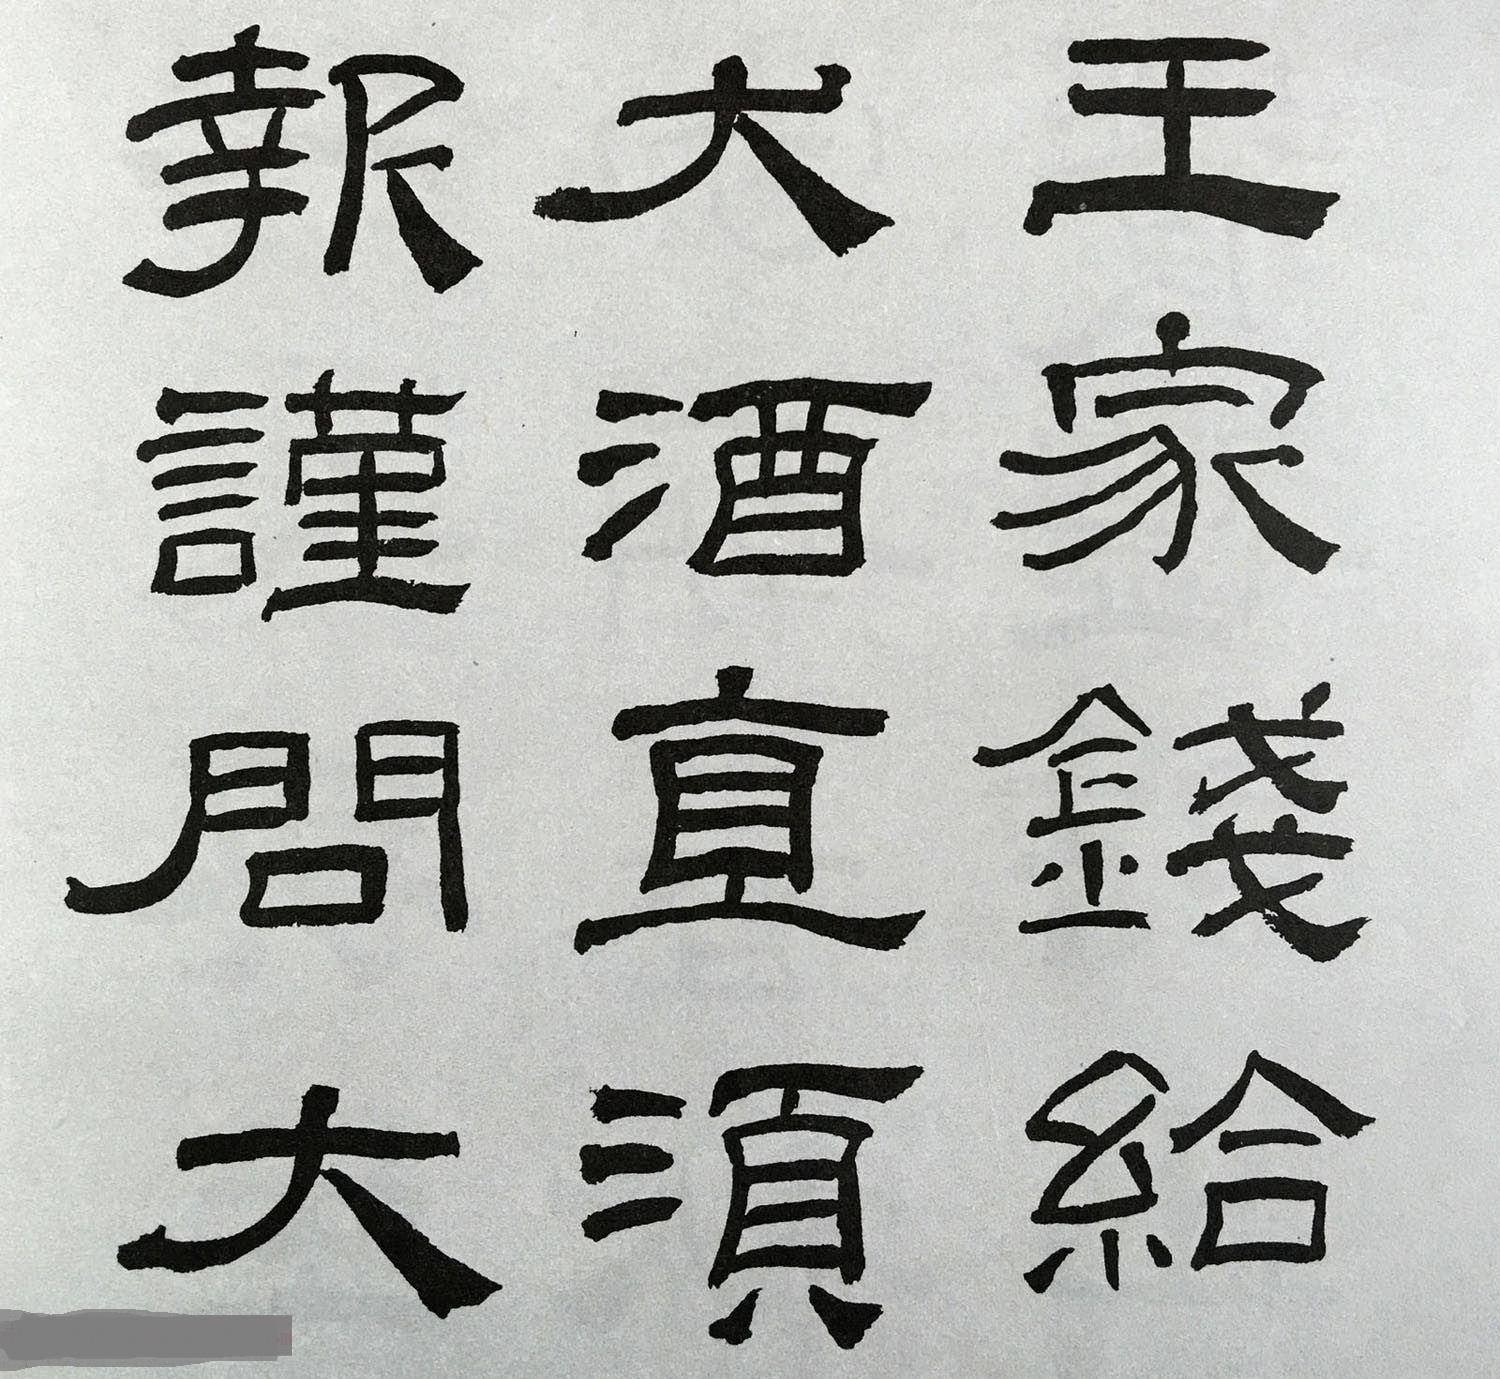 王家錢給
犬酒直須
報謹問大